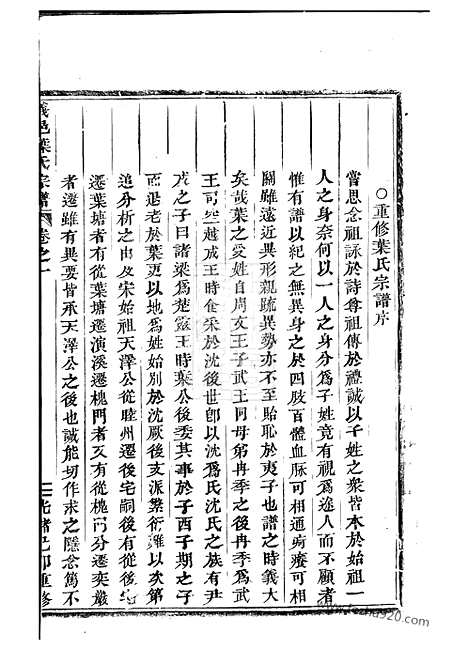 ○重修葉氏宗譜序
嘗思念祖詠於詩尊祖傳於禮誠以千姓之衆皆本於始祖一
人之身奈何以一人之身分爲子姓竟有視爲途人而不顧者
惟有譜以紀之無異身之於四肢百體血脈可相通痾癢可相
關雖遠近異形親疏異勢亦不至貽恥於夷子也譜之時義大
矣哉葉之受姓自周文王子武王同母弟冉季之後冉季爲武
王司空越成王時食采於沈後世卽以沈爲氏沈氏之族有尹
戌之子曰諸梁爲楚靈王時葉公後委其事於子西子期之子
而退老於葉更以地爲姓始別於沈厥後支派繁衍雖以次第
追分析之由及宋始祖天澤公從睦州遷後宅嗣後有從後宅
遷葉塘者有從葉塘遷演溪遷槐門者又有從槐門分遷奕巖
者遷雖有異要皆承天澤公之後也誠能切作求之隱念篤不
義邑葉氏宗譜
卷之一
一
光緒己卯重修
www.fozhu920.com